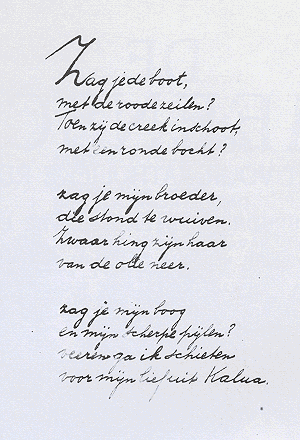 Zag je de boot,
met de roode zeilen?
Toen zij de creek inschoot,
met een ronde bocht?
zag je mijn broeder,
die stond te wuiven.
Zwaar hing zijn haar
van de olie neer.
zag je mijn boog
en mijn scherpe pijlen?
veeren ga ik schieten
voor mijn lief uit Kalua.